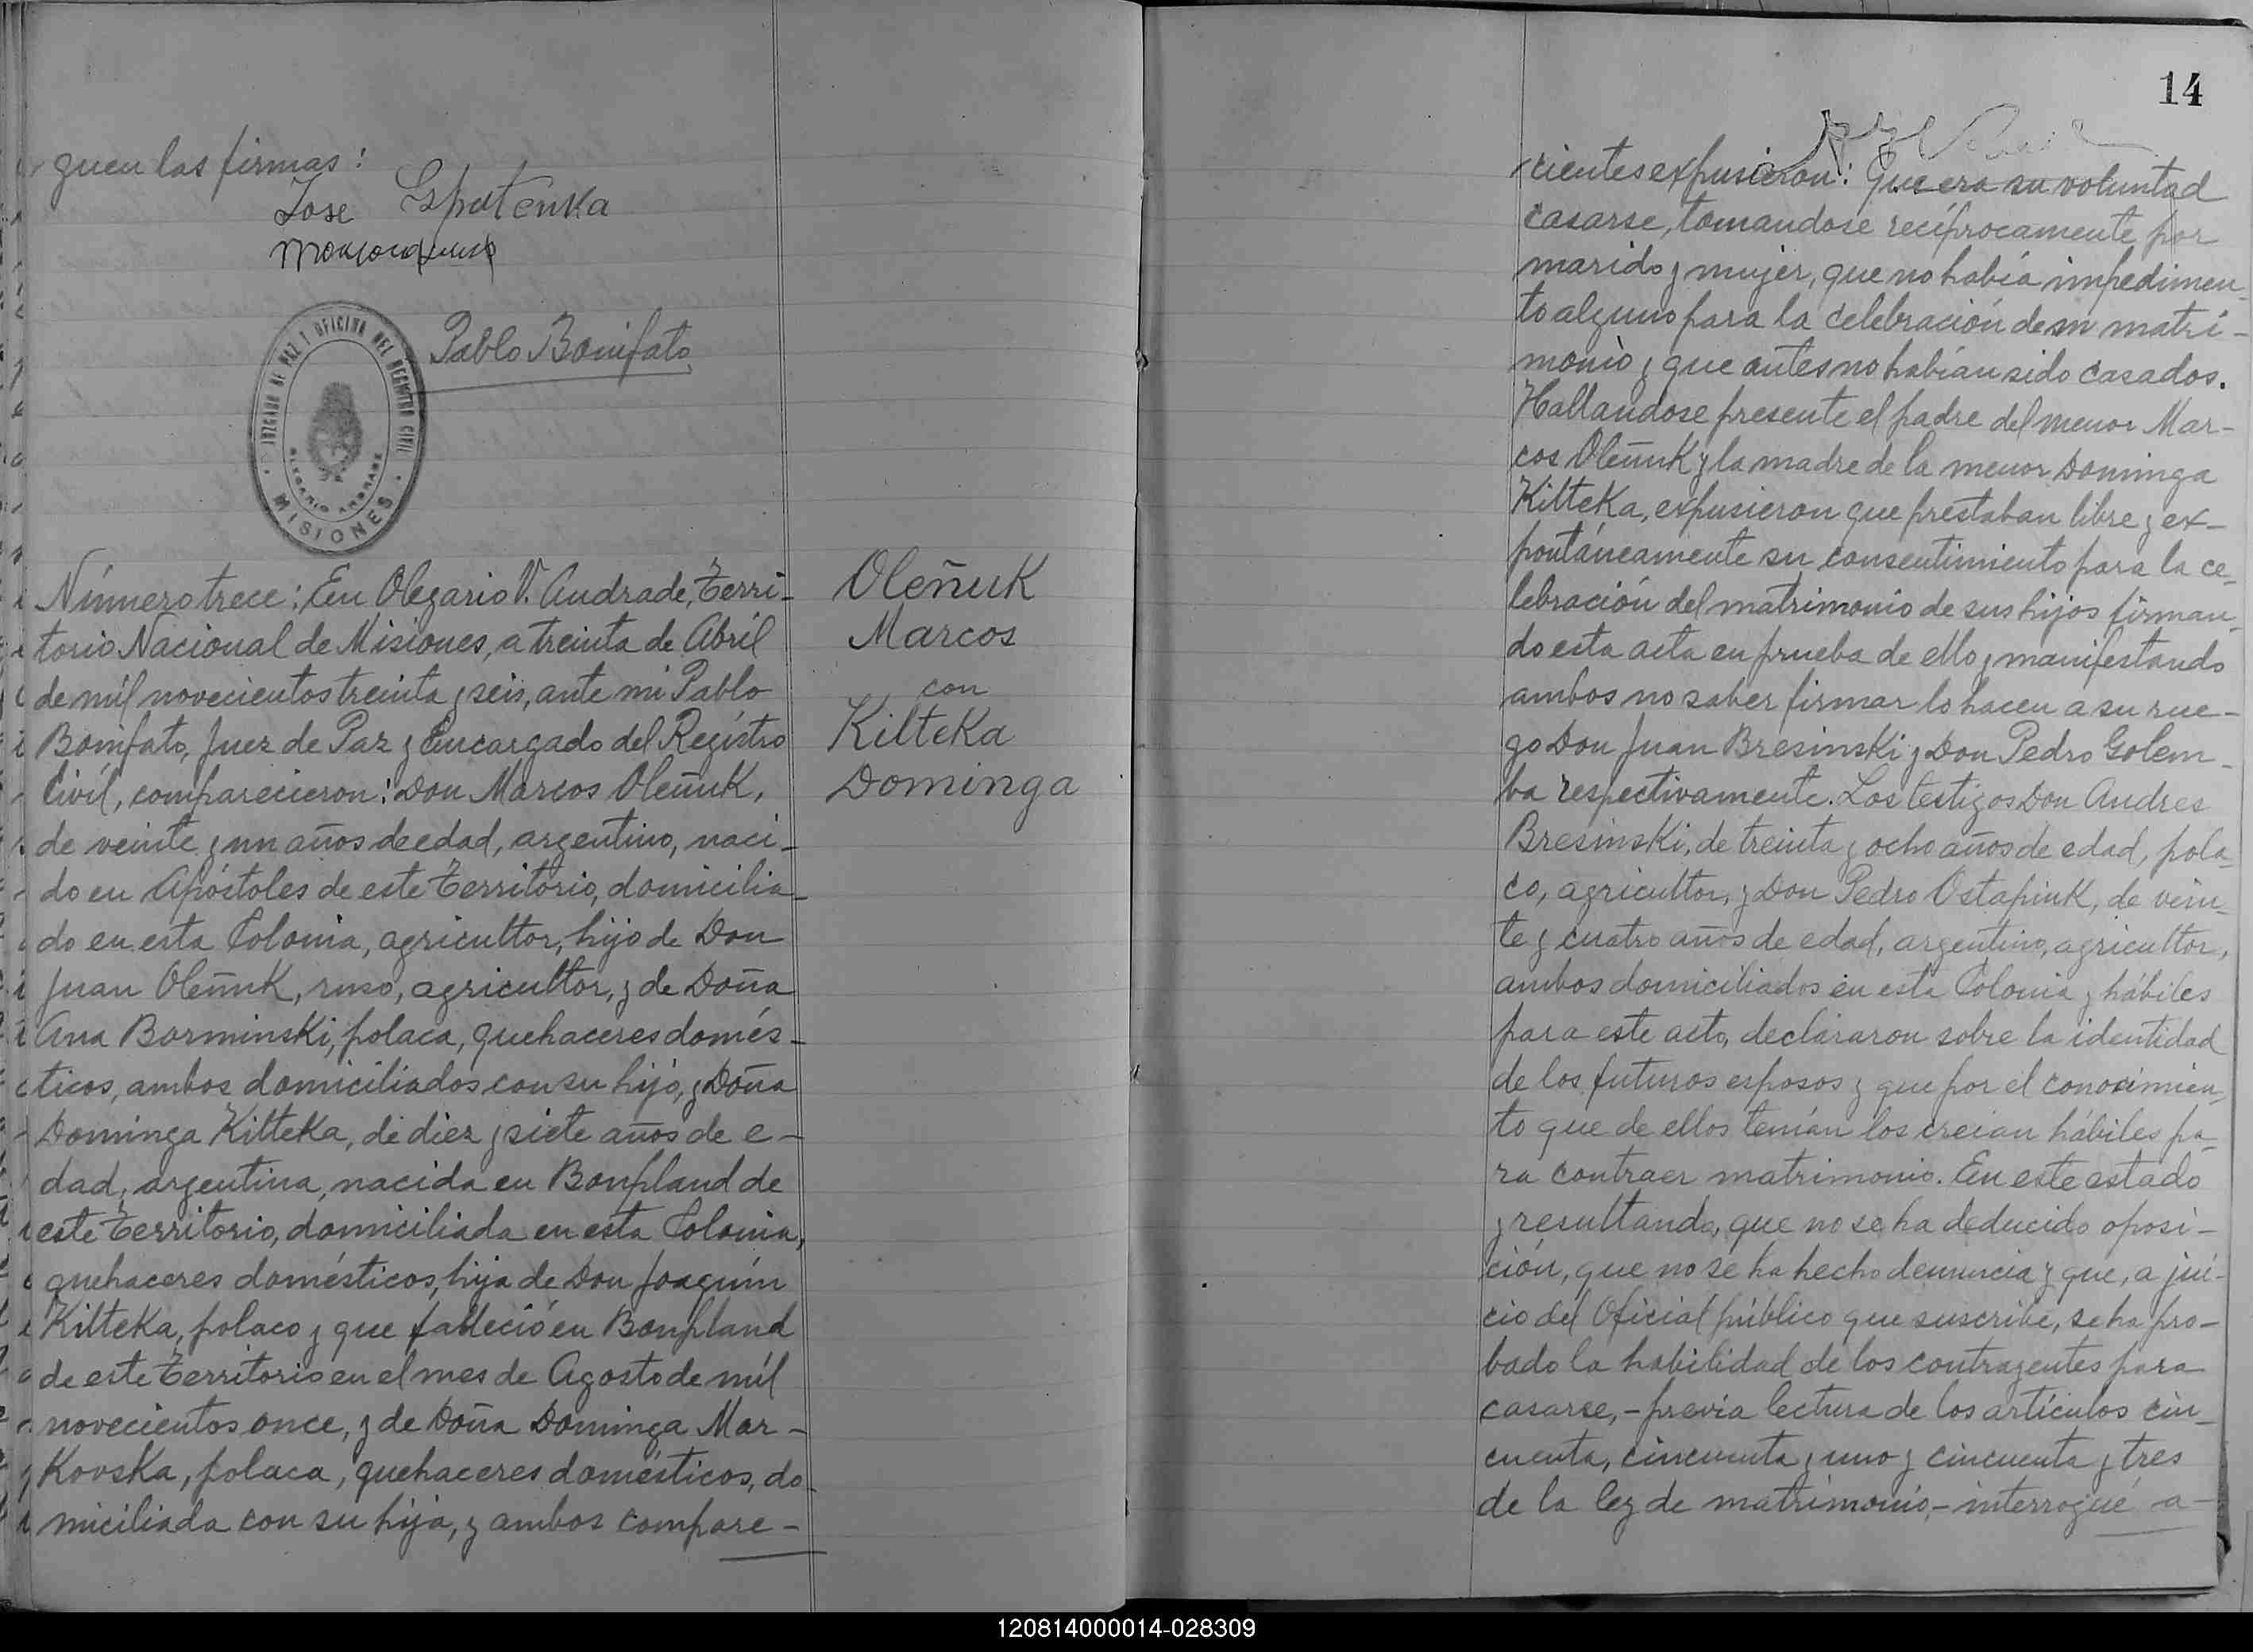 guen las firmas:
Jose
Pablo Bonifato
JUZGADO DE PAZ Y OFICINA DEL REGISTRO CIVIL
OLEGARIO ANDRADE
MISIONES
Número trece: En Olegario V. Andrade, Terri-
torio Nacional de Misiones, a treinta de Abril
de mil novecientos treinta y seis, ante mi Pablo
Bonifato, Juez de Paz y Encargado del Registro
Civil, comparecieron: Don Marcos Oleñuk,
de veinte y un años de edad, argentino, naci-
do en Apóstoles de este Territorio, domicilia-
do en esta Colonia, agricultor, hijo de Don
Juan Oleñuk, ruso, agricultor, y de Doña
Ana Borminski, polaca, quehaceres domés-
ticos, ambos domiciliados con su hijo, y Doña
Dominga Kilteka, de diez y siete años de e-
dad, argentina, nacida en Bonpland de
este Territorio, domiciliada en esta Colonia,
quehaceres domésticos, hija de Don Joaquín
Kilteka, polaco y que falleció en Bonpland
de este Territorio en el mes de Agosto de mil
novecientos once, y de Doña Dominga Mar-
Kovska, polaca, quehaceres domésticos, do-
miciliada con su hija, y ambos compare-
Oleñuk
Marcos
con
Kilteka
Dominga
14
cientes expusieron: Que era su voluntad
casarse, tomandose recíprocamente por
marido y mujer, que no había impedimen-
to alguno para la celebración de su matri-
monio y que antes no habían sido casados.
Hallandose presente el padre del menor Mar-
cos Oleñuk y la madre de la menor Dominga
Kilteka, expusieron que prestaban libre y ex-
pontáneamente su consentimiento para la ce-
lebración del matrimonio de sus hijos firman-
do esta acta en prueba de ello y manifestando
ambos no saber firmar lo hacen a su rue-
go Don Juan Bresinski y Don Pedro Golem-
ba respectivamente. Los testigos Don Andres
Bresinski, de treinta y ocho años de edad, pola-
co, agricultor, y Don Pedro Ostapiuk, de vein-
te y cuatro años de edad, argentino, agricultor,
ambos domiciliados en esta Colonia y hábiles
para este acto, declararon sobre la identidad
de los futuros esposos y que por el conocimien-
to que de ellos tenían los creían hábiles pa-
ra contraer matrimonio. En este estado
y resultando, que no se ha deducido oposi-
ción, que no se ha hecho denuncia y que, a jui-
cio del Oficial público que suscribe, se ha pro-
bado la habilidad de los contrayentes para
casarse, - previa lectura de los artículos cin-
cuenta, cincuenta y uno y cincuenta y tres
de la ley de matrimonio, - interrogué a-
120814000014-028309